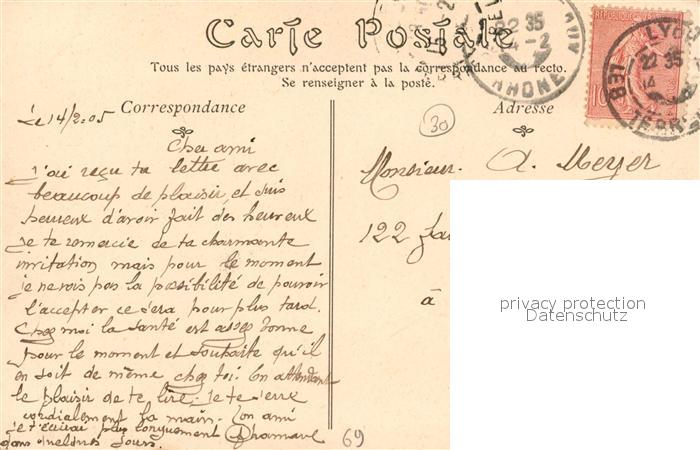 Carte Postale
Tous les pays étrangers n'acceptent pas la correspondance au recto.
Se renseigner à la poste.
Correspondance
Le 14/2-05
Cher ami
J'ai reçu ta lettre avec
beaucoup de plaisir et suis
heureux d'avoir fait des heureux
Je te remercie de ta charmante
invitation mais pour le moment
je ne vois pas la possibilité de pouvoir
l'accepter ce sera pour plus tard.
Chez moi la santé est assez bonne
pour le moment et souhaite qu'il
en soit de même chez toi. En attendant
le plaisir de te lire. Je te serre
cordialement la main. Ton ami
Je t'écrirai plus longuement
dans quelques jours.
69
30
Adresse
Monsieur. A. Meyer
122
à
privacy protection
Datenschutz
REPUBLIQUE
10
LYON
22 35
14
TERR
RHONE
22 35